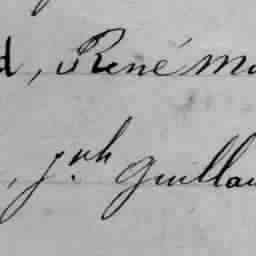 d, René Ma
, j.ph Guillau